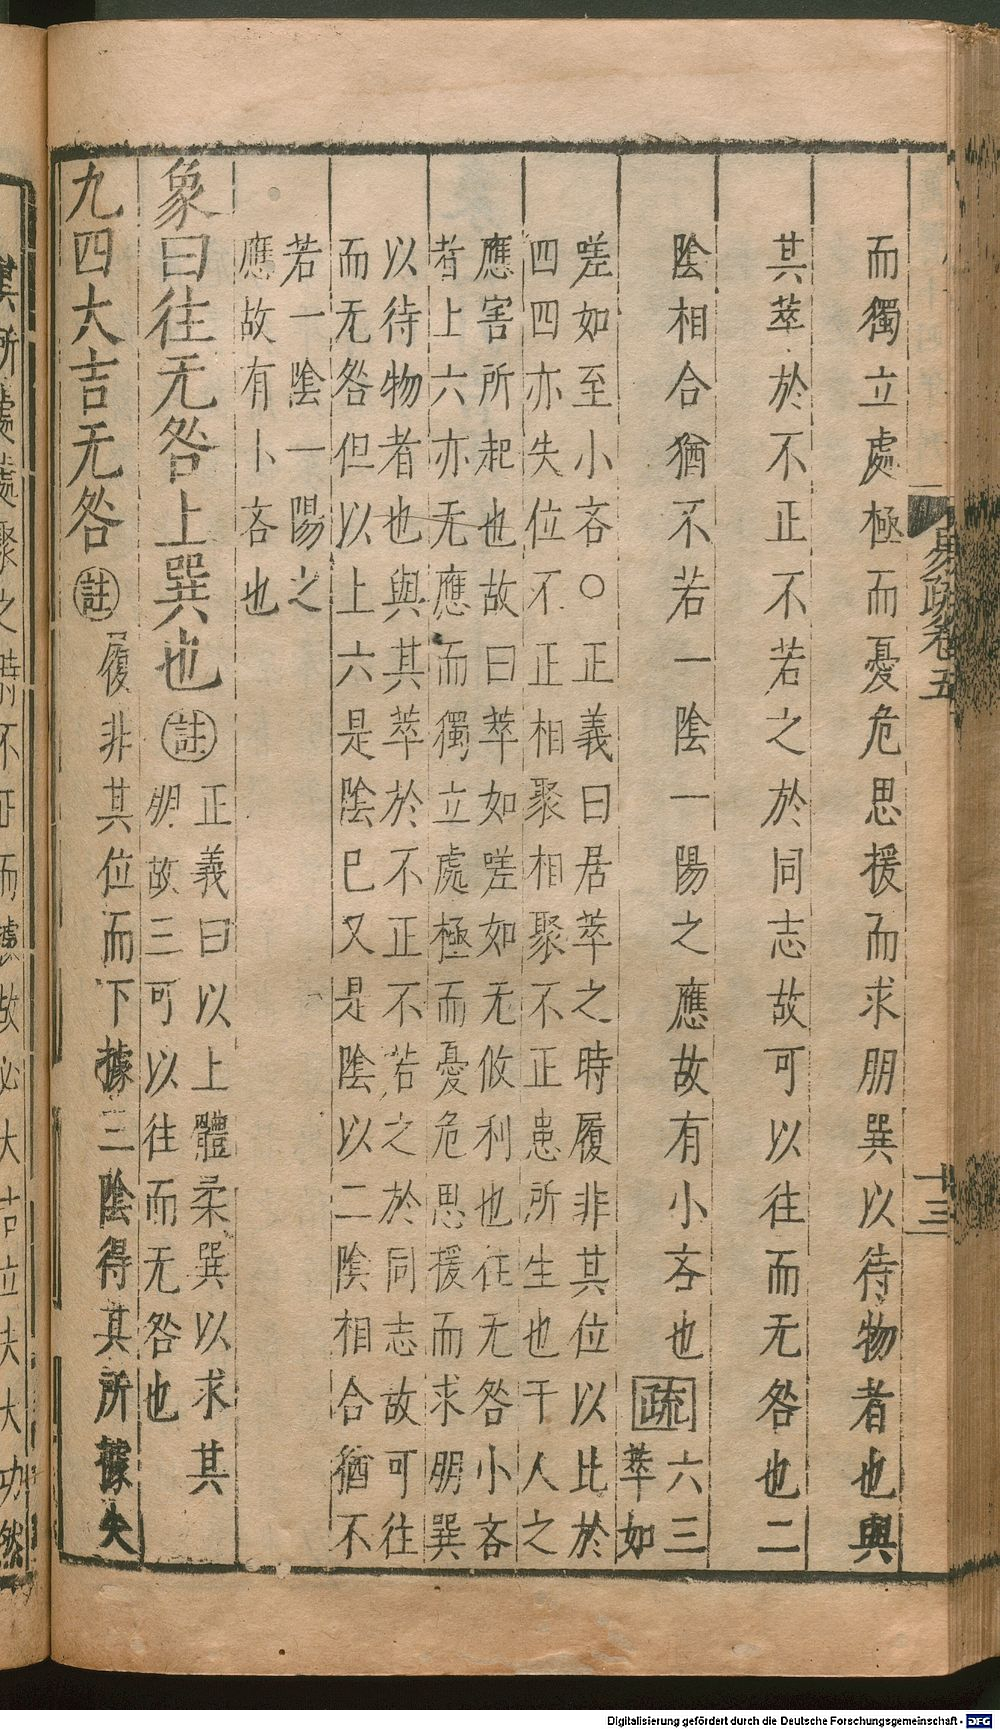 而獨立處極而憂危思援而求朋巽以待物者也與
其萃於不正不若之於同志故可以往而无咎也二
陰相合猶不若一陰一陽之應故有小吝也疏六三
萃如
嗟如至小吝○正義曰居萃之時履非其位以比於
四四亦失位不正相聚相聚不正患所生也干人之
應害所起也故曰萃如嗟如无攸利也往无咎小吝
者上六亦无應而獨立處極而憂危思援而求朋巽
以待物者也與其萃於不正不若之於同志故可往
而无咎但以上六是陰已又是陰以二陰相合猶不
若一陰一陽之
應故有卜吝也
象曰往无咎上巽也註正義曰以上體柔巽以求其
朋故三可以往而无咎也
九四大吉无咎註履非其位而下據三陰得其所據失
易疏卷五
十三
其所處處聚之時不正而據故必大吉立夫大功然
Digitalisierung gefördert durch die Deutsche Forschungsgemeinschaft - DFG